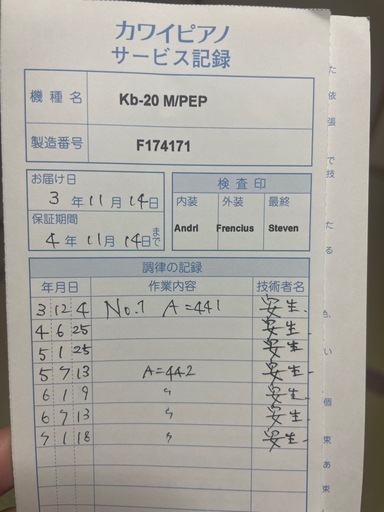 カワイピアノ
サービス記録
機種名 Kb-20 M/PEP
製造番号 F174171
お届け日
3年11月14日
保証期間
4年11月14日まで
検査印
内装 外装 最終
Andri Frencius Steven
調律の記録
年月日 作業内容 技術者名
3 12 4 No.1 A=441 安生
4 6 25 安生
5 1 25 安生
5 7 13 A=442 安生
6 1 9 〃 安生
6 7 13 〃 安生
7 1 18 〃 安生